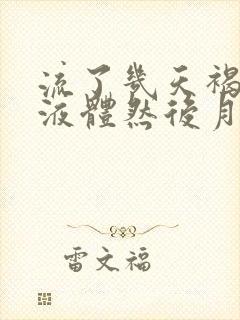 流了幾天褐
液體然後月
雷文福